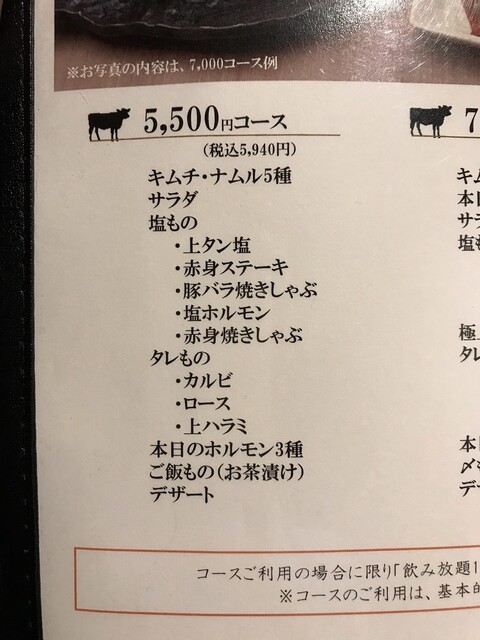 ※お写真の内容は、7,000コース例
5,500円コース
(税込5,940円)
キムチ・ナムル5種
サラダ
塩もの
・上タン塩
・赤身ステーキ
・豚バラ焼きしゃぶ
・塩ホルモン
・赤身焼きしゃぶ
タレもの
・カルビ
・ロース
・上ハラミ
本日のホルモン3種
ご飯もの(お茶漬け)
デザート
7
キム
本日
サラ
塩も
極上
タレ
本日
〆も
デザ
コースご利用の場合に限り「飲み放題1
※コースのご利用は、基本的